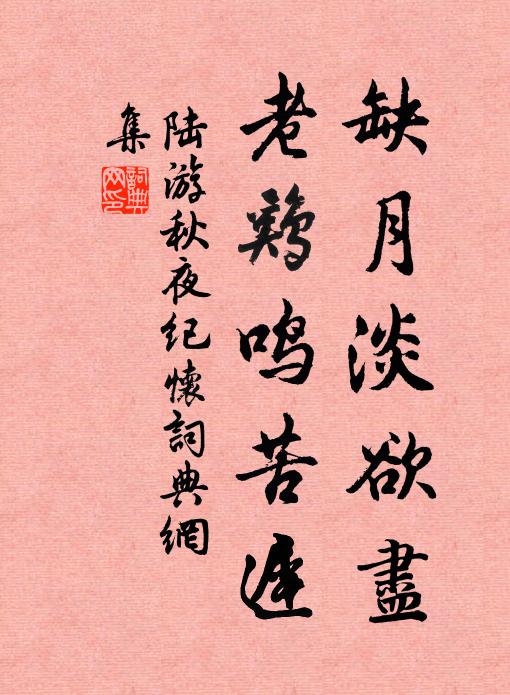 缺月淡欲盡
老鷄鳴苦遲
陆游秋夜纪懷詞典網
集
詞典网印